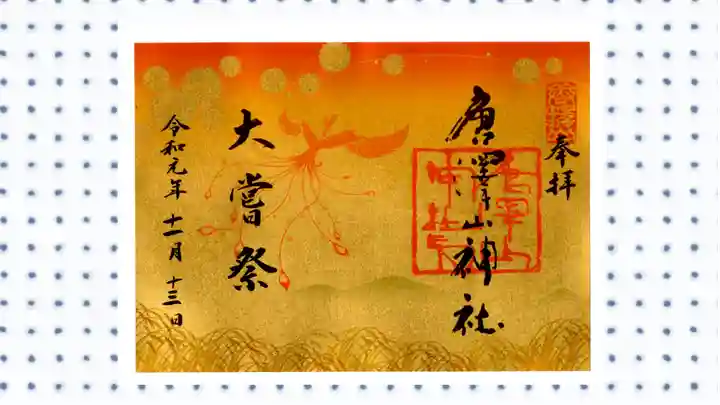 奉拝
唐澤山神社
大嘗祭
令和元年 十一月 十三日